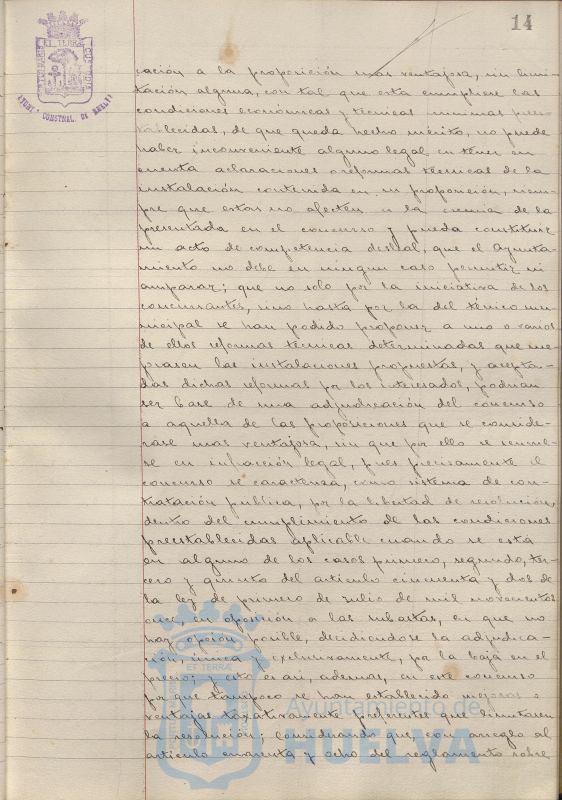 14
PORTUS MARIS ET TERRÆ CUSTODIA
AYUNT. CONSTNAL. DE HUELVA
cación a la proposición mas ventajosa, sin limi-
tación alguna, con tal que esta cumpliese las
condiciones económicas y técnicas minimas pres-
tablecidas, de que queda hecho mérito, no puede
haber inconveniente alguno legal en tener en
cuenta aclaraciones o reformas técnicas de la
instalación contenida en su proposición, siem-
pre que estas no afecten a la esencia de la
presentada en el concurso y pueda constituir
un acto de competencia desleal, que el Ayunta-
miento no debe en ningun caso permitir ni
amparar; que no solo por la iniciativa de los
concursantes, sino hasta por la del técnico mu-
nicipal se han podido proponer a uno o varios
de ellos reformas técnicas determinadas que me-
jorasen las instalaciones propuestas, y acepta-
das dichas reformas por los interesados, podrian
ser base de una adjudicación del concurso
a aquella de las proposiciones que se conside-
rase mas ventajosa, sin que por ello se
en infracción legal, pues precisamente el
concurso se caracteriza, como sistema de con-
tratación publica, por la libertad de resolución,
dentro del cumplimiento de las condiciones
preestablecidas aplicable cuando se está
en alguno de los casos primero, segundo, ter-
cero y quinto del articulo cincuenta y dos de
la ley de primero de Julio de mil novecientos
once, en oposición a las subastas, en que no
hay opción posible, decidiendose la adjudica-
ción, única y exclusivamente, por la baja en el
precio; y esto es asi, ademas, en este concurso
por que tampoco se han establecido mejoras o
ventajas taxativamente preferentes que limitasen
la resolución; Considerando que, con arreglo al
articulo cuarenta y ocho del reglamento sobre
ET TERRÆ
Ayuntamiento de
HUELVA